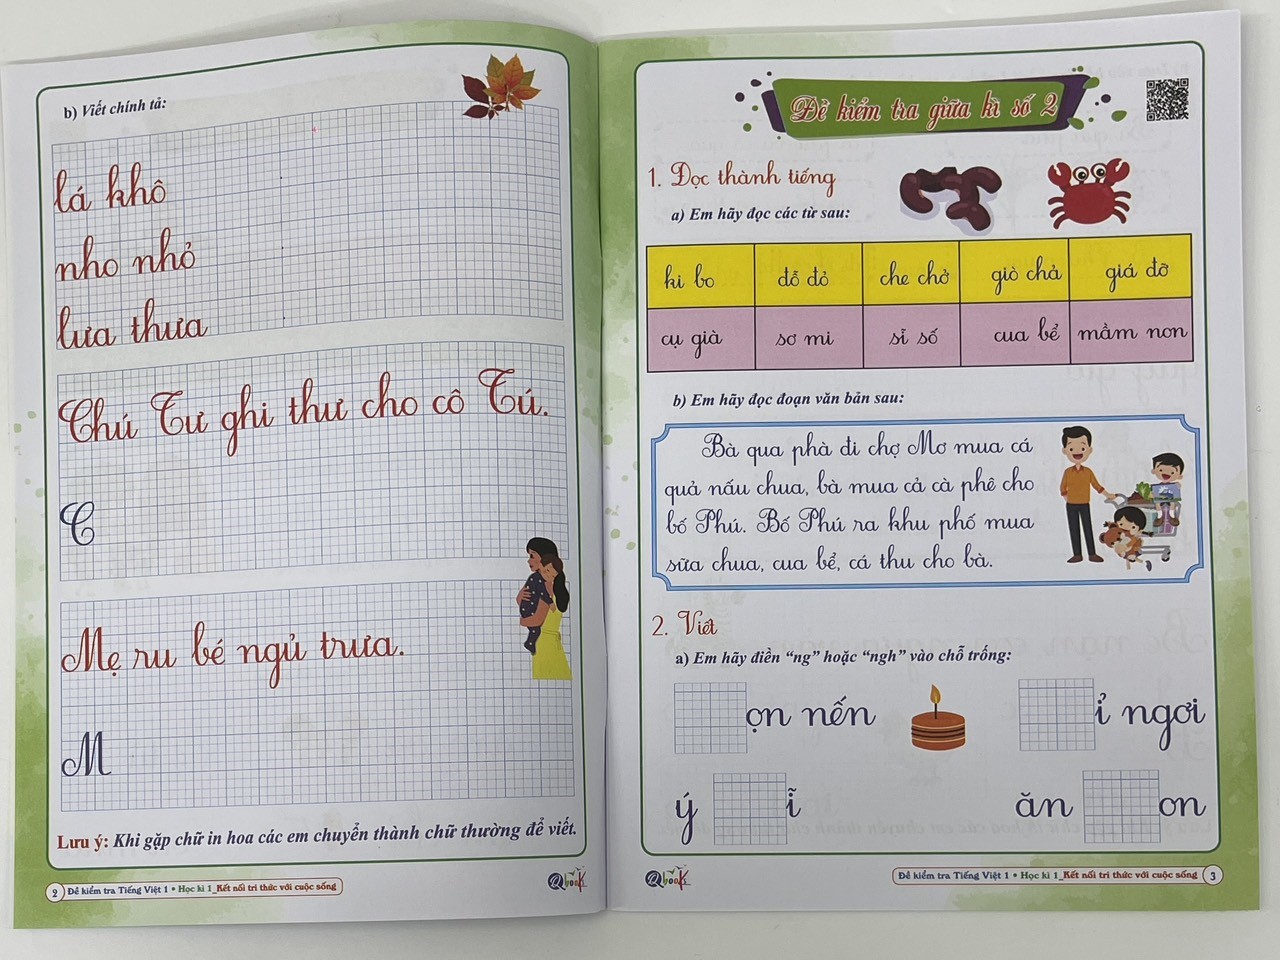 b) Viết chính tả:
lá khô
nho nhỏ
lưa thưa
Chú Tư ghi thư cho cô Tú.
C
Mẹ ru bé ngủ trưa.
M
Lưu ý: Khi gặp chữ in hoa các em chuyển thành chữ thường để viết.
2 Đề kiểm tra Tiếng Việt 1 • Học kì 1_Kết nối tri thức với cuộc sống
Qbook
Đề kiểm tra giữa kì số 2
1. Đọc thành tiếng
a) Em hãy đọc các từ sau:
ki bo đỗ đỏ che chở giò chả giá đỡ
cụ già sơ mi sỉ số cua bể mầm non
b) Em hãy đọc đoạn văn bản sau:
Bà qua phà đi chợ Mơ mua cá
quả nấu chua, bà mua cả cà phê cho
bố Phú. Bố Phú ra khu phố mua
sữa chua, cua bể, cá thu cho bà.
2. Viết
a) Em hãy điền “ng” hoặc “ngh” vào chỗ trống:
ọn nến ỉ ngơi
ý ĩ ăn on
Qbook
Đề kiểm tra Tiếng Việt 1 • Học kì 1_Kết nối tri thức với cuộc sống 3